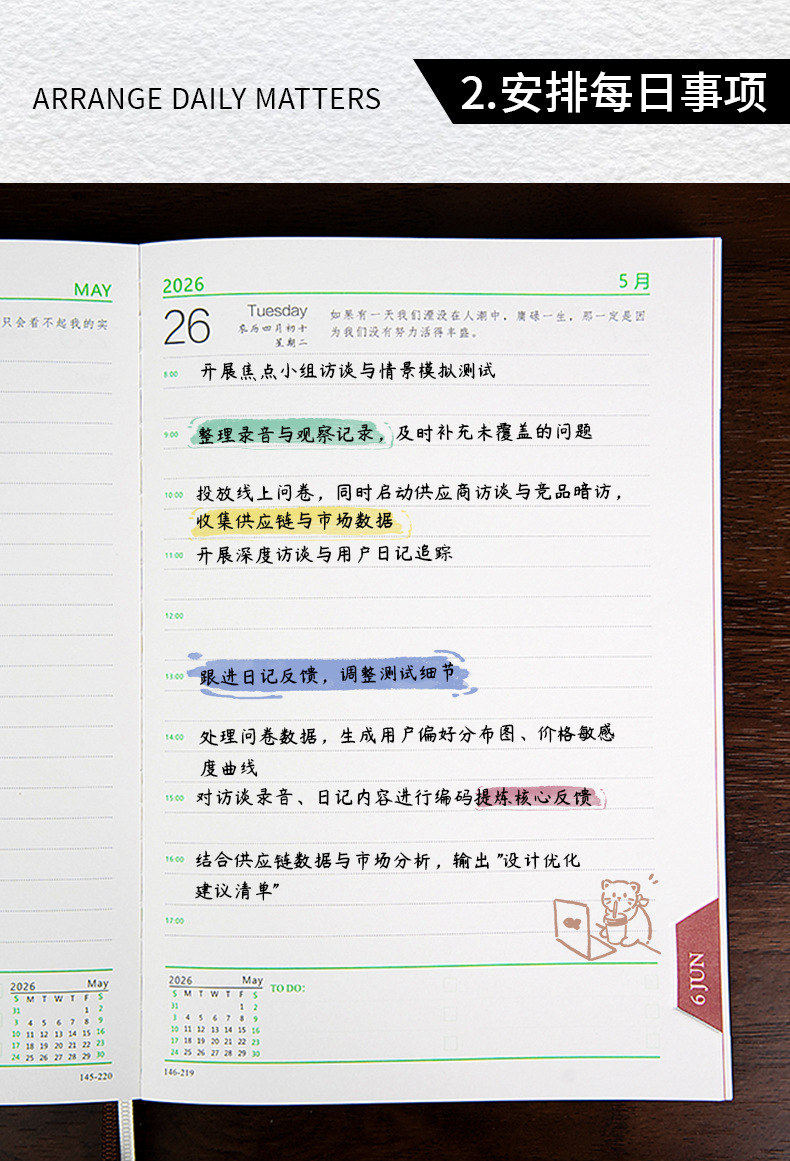 ARRANGE DAILY MATTERS
2.安排每日事项
MAY
只会看不起我的实
2026
5月
26
Tuesday
农历四月初十
星期二
如果有一天我们湮没在人潮中，庸碌一生，那一定是因
为我们没有努力活得丰盛。
8:00 开展焦点小组访谈与情景模拟测试
9:00 整理录音与观察记录，及时补充未覆盖的问题
10:00 投放线上问卷，同时启动供应商访谈与竞品暗访，
收集供应链与市场数据
11:00 开展深度访谈与用户日记追踪
12:00
13:00 跟进日记反馈，调整测试细节
14:00 处理问卷数据，生成用户偏好分布图、价格敏感
度曲线
15:00 对访谈录音、日记内容进行编码提炼核心反馈
16:00 结合供应链数据与市场分析，输出"设计优化
建议清单"
17:00
6 JUN
2026 May
S M T W T F S
31 1 2
3 4 5 6 7 8 9
10 11 12 13 14 15 16
17 18 19 20 21 22 23
24 25 26 27 28 29 30
145-220
2026 May
S M T W T F S
31 1 2
3 4 5 6 7 8 9
10 11 12 13 14 15 16
17 18 19 20 21 22 23
24 25 26 27 28 29 30
TO DO:
146-219